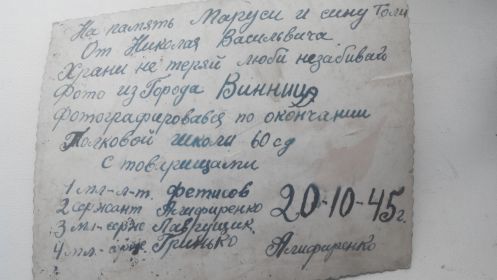 На память Маруси и сину Толи
От Николая Васильвича
Храни не теряй люби незабивай
Фото из Города Винница
Фотографировався по окончании
Полковой школи 60 сд
с товарищами
1 мл-л-т. Фетисов
2 сержант Алифиренко
3 мл-серж Лавгущик
4 мл-серж Гринько
20-10-45 г.
Алифиренко